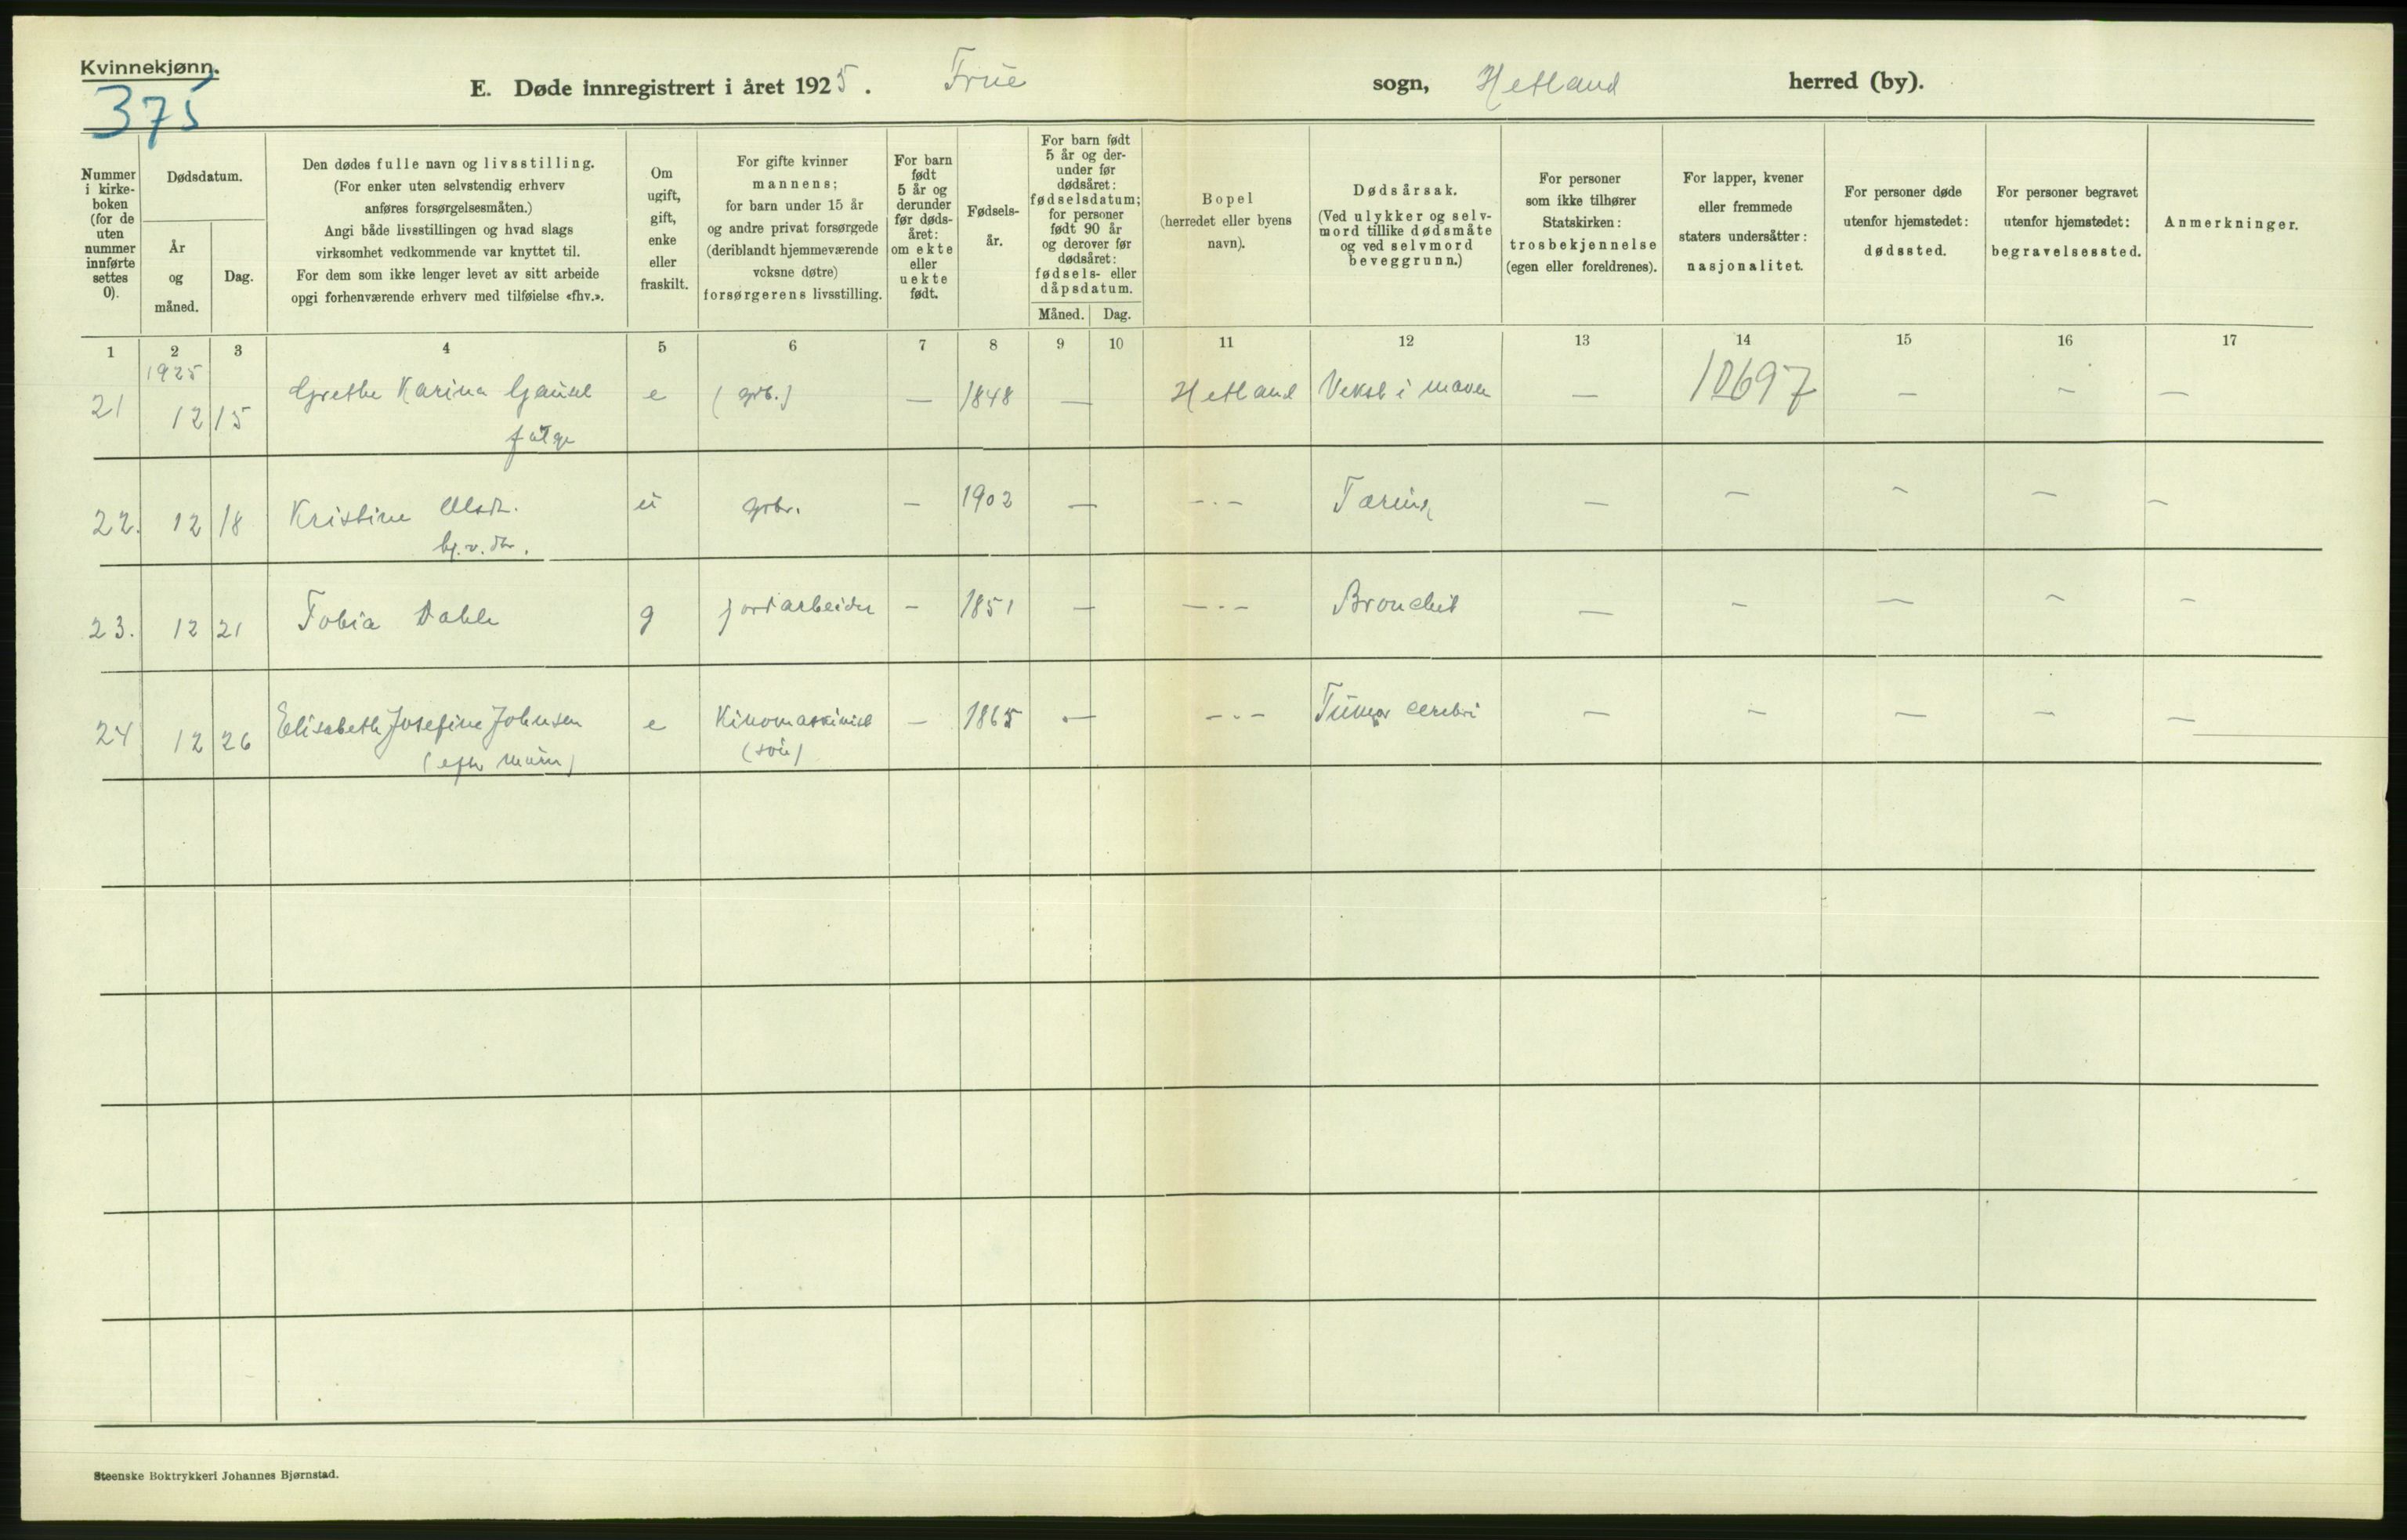 Kvinnekjønn.
375
E. Døde innregistrert i året 1925. Frue sogn, Hetland herred (by).
Nummer i kirkeboken (for de uten nummer innførte settes 0).
Dødsdatum.
År og måned.
Dag.
Den dødes fulle navn og livsstilling.
(For enker uten selvstendig erhverv
anføres forsørgelsesmåten.)
Angi både livsstillingen og hvad slags
virksomhet vedkommende var knyttet til.
For dem som ikke lenger levet av sitt arbeide
opgi forhenværende erhverv med tilføielse «fhv.».
Om
ugift,
gift,
enke
eller
fraskilt.
For gifte kvinner
mannens;
for barn under 15 år
og andre privat forsørgede
(deriblandt hjemmeværende
voksne døtre)
forsørgerens livsstilling.
For barn
født
5 år og
derunder
før døds-
året:
om ekte
eller
uekte
født.
Fødsels-
år.
For barn født
5 år og der-
under før
dødsåret:
fødselsdatum;
for personer
født 90 år
og derover før
dødsåret:
fødsels- eller
dåpsdatum.
Måned. Dag.
Bopel
(herredet eller byens
navn).
Dødsårsak.
(Ved ulykker og selv-
mord tillike dødsmåte
og ved selvmord
beveggrunn.)
For personer
som ikke tilhører
Statskirken:
trosbekjennelse
(egen eller foreldrenes).
For lapper, kvener
eller fremmede
staters undersåtter:
nasjonalitet.
For personer døde
utenfor hjemstedet:
dødssted.
For personer begravet
utenfor hjemstedet:
begravelsessted.
Anmerkninger.
1 2 3 4 5 6 7 8 9 10 11 12 13 14 15 16 17
1925
21 12 15 Grethe Karina Gausel e (grb.) — 1848 — Hetland Vekst i maven — 10697 — — —
22. 12 18 Kristine Olsdt. u grbr. — 1902 — — - — Tæring — — — — —
23. 12 21 Tobia Dahle g jordarbeider — 1851 — — - — Bronchit — — — — —
24 12 26 Elisabeth Josefine Johnsen e Kinomaskinist — 1865 — — - — Tumor cerebri — — — — —
Steenske Boktrykkeri Johannes Bjørnstad.